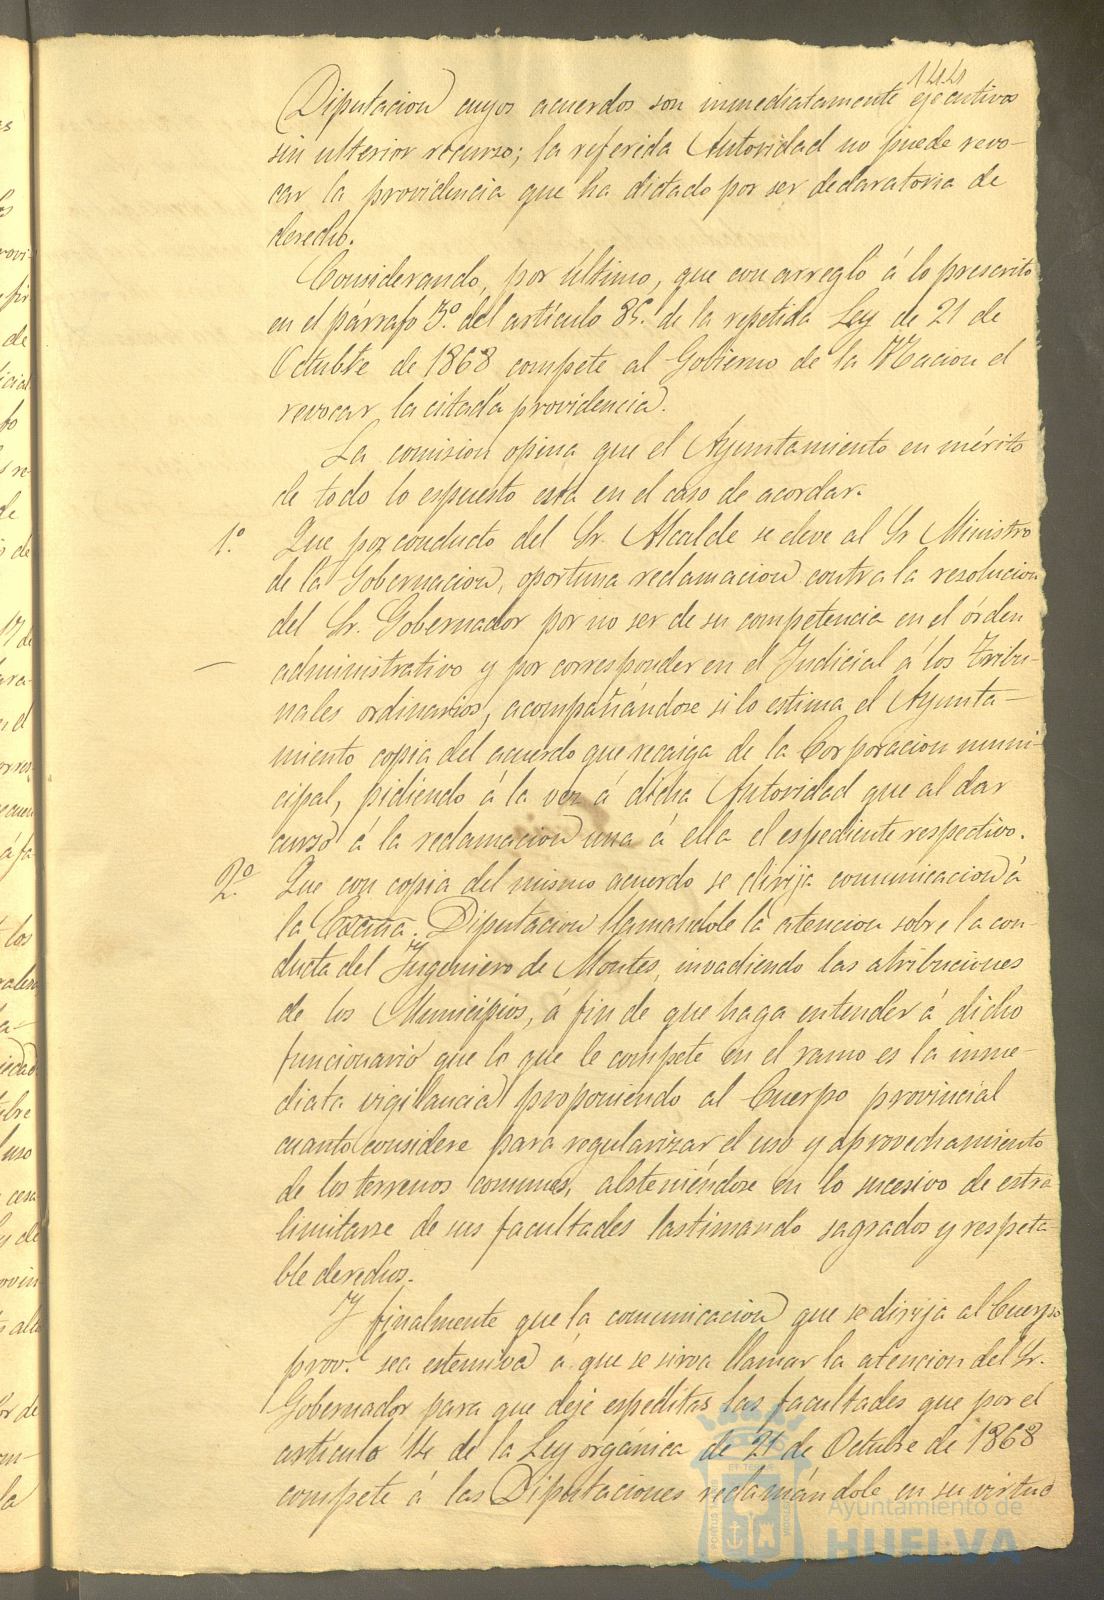 144
Diputacion cuyos acuerdos son inmediatamente ejecutivos
sin ulterior recurso; la referida Autoridad no puede revo-
car la providencia que ha dictado por ser declaratoria de
derecho.
Considerando, por último, que con arreglo á lo prescrito
en el párrafo 3º. del artículo 85. de la repetida Ley de 21 de
Octubre de 1868 compete al Gobierno de la Nacion el
revocar la citada providencia.
La comision opina que el Ayuntamiento en mérito
de todo lo espuesto está en el caso de acordar.
1.º Que por conducto del Sr. Alcalde se eleve al Sr Ministro
de la Gobernacion, oportuna reclamacion contra la resolucion
del Sr. Gobernador por no ser de su competencia en el órden
administrativo y por corresponder en el Judicial á los tribu-
nales ordinarios, acompañándose si lo estima el Ayunta-
miento copia del acuerdo que recaiga de la Corporacion muni-
cipal, pidiendo á la vez á dicha Autoridad que al dar
curso á la reclamacion una á ella el espediente respectivo.
2.º Que con copia del mismo acuerdo se dirija comunicacion á
la Excma. Diputacion llamandole la atencion sobre la con-
ducta del Ingeniero de Montes, invadiendo las atribuciones
de los Municipios, á fin de que haga entender á dicho
funcionario que lo que le compete en el ramo es la inme-
diata vigilancia proponiendo al Cuerpo provincial
cuanto considere para regularizar el uso y aprovechamiento
de los terrenos comunes, absteniéndose en lo sucesivo de estra
limitarse de sus facultades lastimando sagrados y respeta-
ble derechos.
Y finalmente que la comunicacion que se dirija al Cuerpo
prov.l sea estensiva á que se sirva llamar la atencion del Sr.
Gobernador para que deje espeditas las facultades que por el
artículo 14 de la Ley orgánica de 21 de Octubre de 1868
compete á las Diputaciones reclamándole en su virtud
Ayuntamiento de
HUELVA